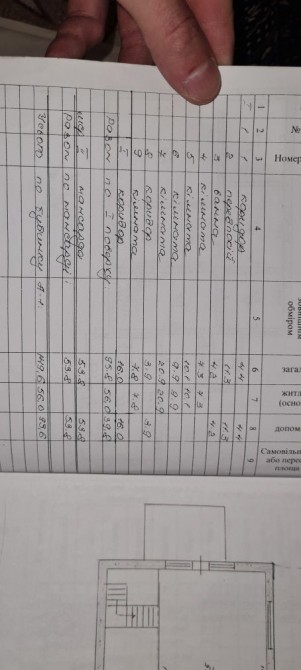 №
Номер
обміром
загал
житл
(осно
допом
Самовільн
або перео
площа
1 2 3 4 5 6 7 8 9
I 1 1 коридор 4.4 4.4
2 передпокій 11.3 11.3
3 ванна 4.2 4.2
4 кімната 7.3 7.3
5 кімната 10.1 10.1
6 кімната 9.9 9.9
7 кімната 20.9 20.9
8 коридор 3.9 3.9
9 кімната 7.8 7.8
I коридор 16.0 16.0
Разом по I поверху: 95.8 56.0 39.8
I мансарда 53.8 53.8
Разом по мансарді: 53.8 53.8
Усього по будинку А-1 149.6 56.0 93.6